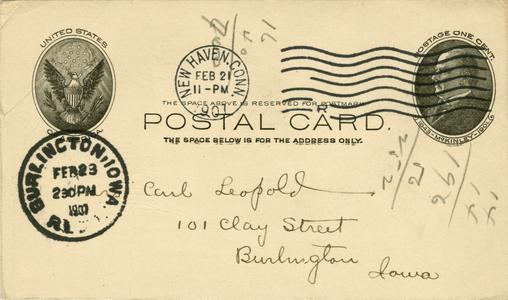 UNITED STATES
NEW HAVEN, CONN.
FEB 21
11-PM
1907
POSTAGE ONE CENT.
1843-McKINLEY-1901
THE SPACE ABOVE IS RESERVED FOR POSTMARK.
POSTAL CARD.
THE SPACE BELOW IS FOR THE ADDRESS ONLY.
BURLINGTON, IOWA
FEB 23
230PM
1907
Carl Leopold
101 Clay Street
Burlington
Iowa
261